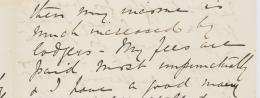 then my income is
much increased by
lodgers - My fees are
paid most unpunctually
& I have a good many